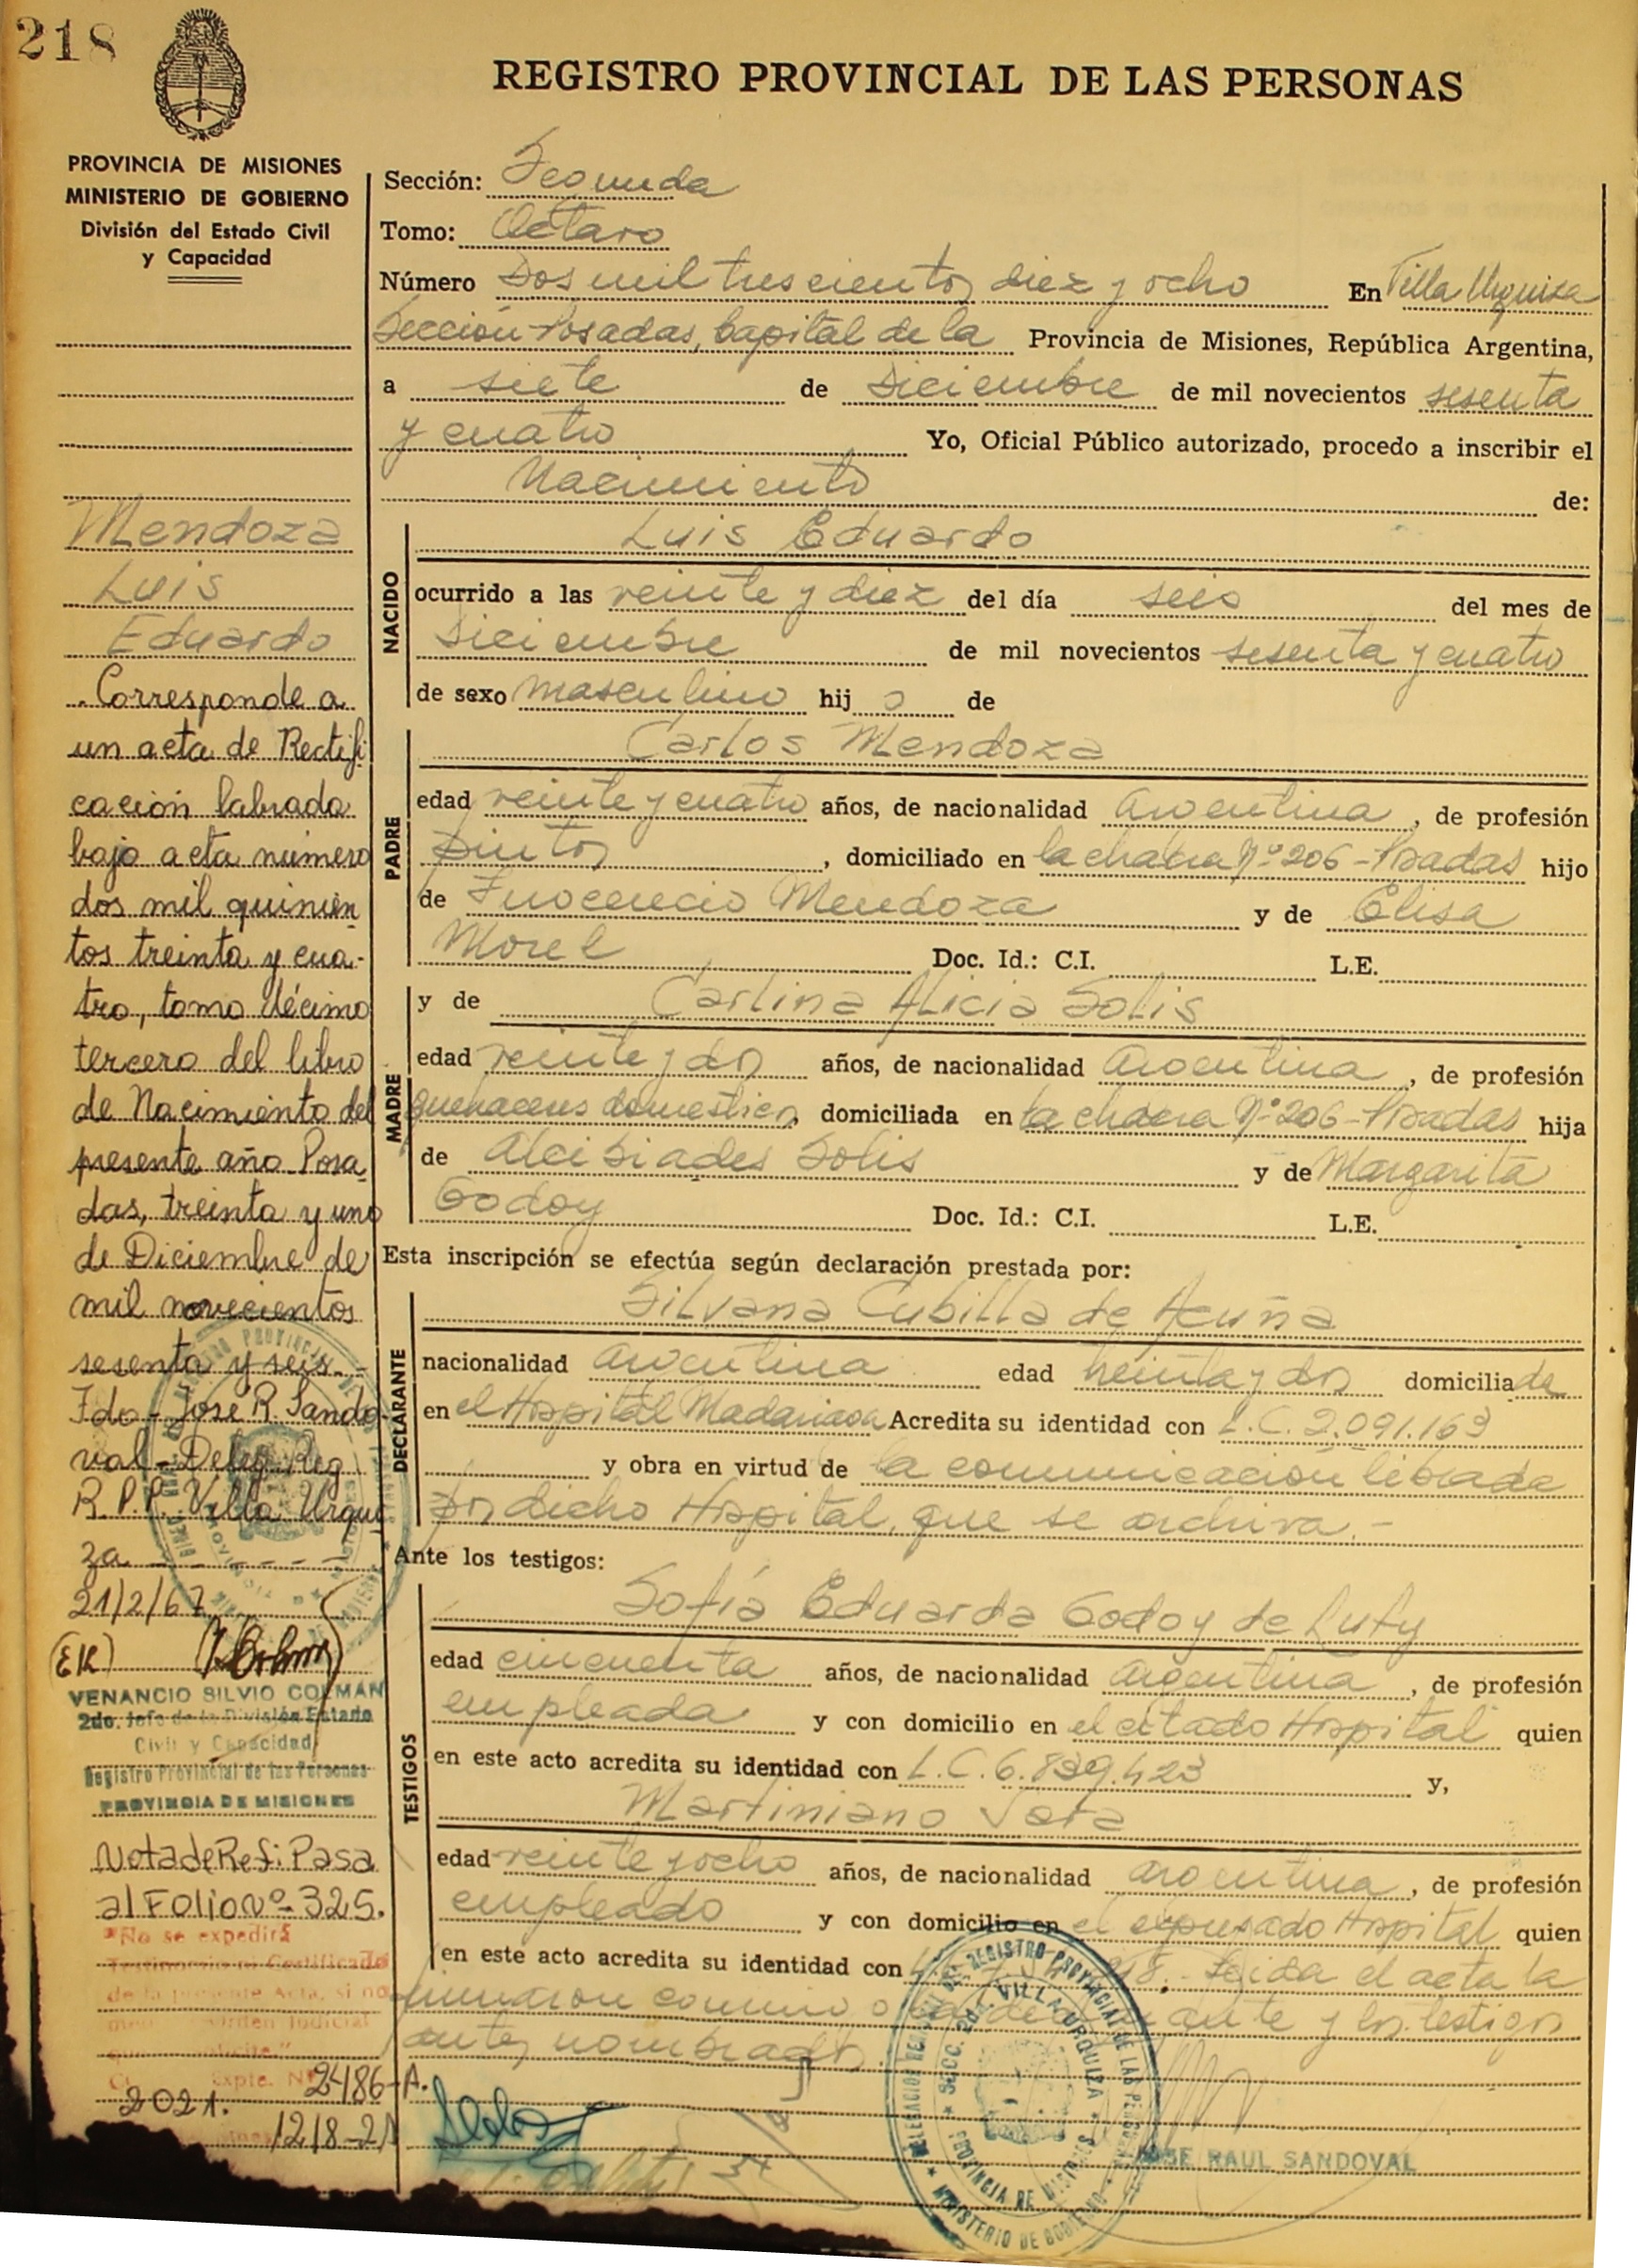 218
REGISTRO PROVINCIAL DE LAS PERSONAS
PROVINCIA DE MISIONES
MINISTERIO DE GOBIERNO
División del Estado Civil
y Capacidad
Mendoza
Luis
Eduardo
Corresponde a
un acta de Rectifi
cación labrada
bajo acta número
dos mil quinien
tos treinta y cua-
tro, tomo décimo
tercero del libro
de Nacimiento del
presente año Posa
das, treinta y uno
de Diciembre de
mil novecientos
sesenta y seis.-
Fdo-José R. Sando-
val-Deleg. Reg
R.P.P. Villa Urqui
za
21/2/67
(ER)
VENANCIO SILVIO COLMAN
2do. Jefe de la División Estado
Civil y Capacidad
Registro Provincial de las Personas
PROVINCIA DE MISIONES
Nota de Ref: Pasa
al Folio Nº 325.
"No se expedirá
Testimonio ni Certificado
de la presente Acta, si no
Judicial
Expte. Nº 2486-A.
2021.
12/8-21
Sección: Segunda
Tomo: Octavo
Número Dos mil trescientos diez y ocho En Villa Urquiza
Sección Posadas, Capital de la Provincia de Misiones, República Argentina,
a siete de Diciembre de mil novecientos sesenta
y cuatro Yo, Oficial Público autorizado, procedo a inscribir el
Nacimiento de:
NACIDO
Luis Eduardo
ocurrido a las veinte y diez del día seis del mes de
Diciembre de mil novecientos sesenta y cuatro
de sexo masculino hij o de
PADRE
Carlos Mendoza
edad veinte y cuatro años, de nacionalidad argentina, de profesión
pintor, domiciliado en la chacra Nº 206-Posadas hijo
de Inocencio Mendoza y de Elisa
Morel Doc. Id.: C.I. L.E.
MADRE
y de Carlina Alicia Solis
edad veinte y dos años, de nacionalidad argentina, de profesión
quehaceres domesticos, domiciliada en la chacra Nº 206-Posadas hija
de Alcibiades Solis y de Margarita
Godoy Doc. Id.: C.I. L.E.
Esta inscripción se efectúa según declaración prestada por:
DECLARANTE
Silvana Cubilla de Acuña
nacionalidad argentina edad treinta y dos domiciliada
en el Hospital Madariaga Acredita su identidad con L.C. 2.091.163
y obra en virtud de la comunicación librada
por dicho Hospital, que se archiva.-
Ante los testigos:
TESTIGOS
Sofía Eduarda Godoy de Luty
edad cincuenta años, de nacionalidad argentina, de profesión
empleada y con domicilio en el citado Hospital quien
en este acto acredita su identidad con L.C. 6.839.423 y,
Martiniano Vera
edad veinte y ocho años, de nacionalidad argentina, de profesión
empleado y con domicilio en el expresado Hospital quien
en este acto acredita su identidad con Leida el acta la
firmaron conmigo declarante y los testigos
antes nombrados
DELEGACION DEL REGISTRO PROVINCIAL DE LAS PERSONAS
SECC. 2da. VILLA URQUIZA
PROVINCIA DE MISIONES
MINISTERIO DE GOBIERNO
JOSE RAUL SANDOVAL